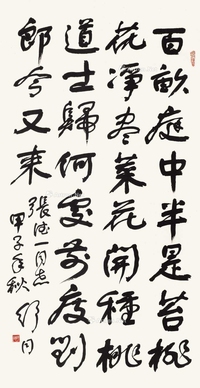 百畝庭中半是苔桃
花淨盡菜花開種桃
道士歸何處前度劉
郎今又来
張一同志
甲子年秋 舒同